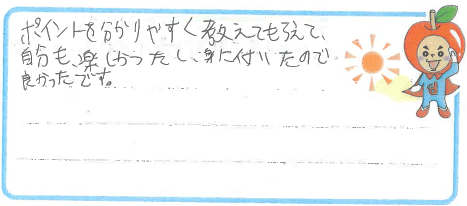 ポイントを分かりやすく教えてもらえて、
自分も、楽しかったし、身に付いたので
良かったです。